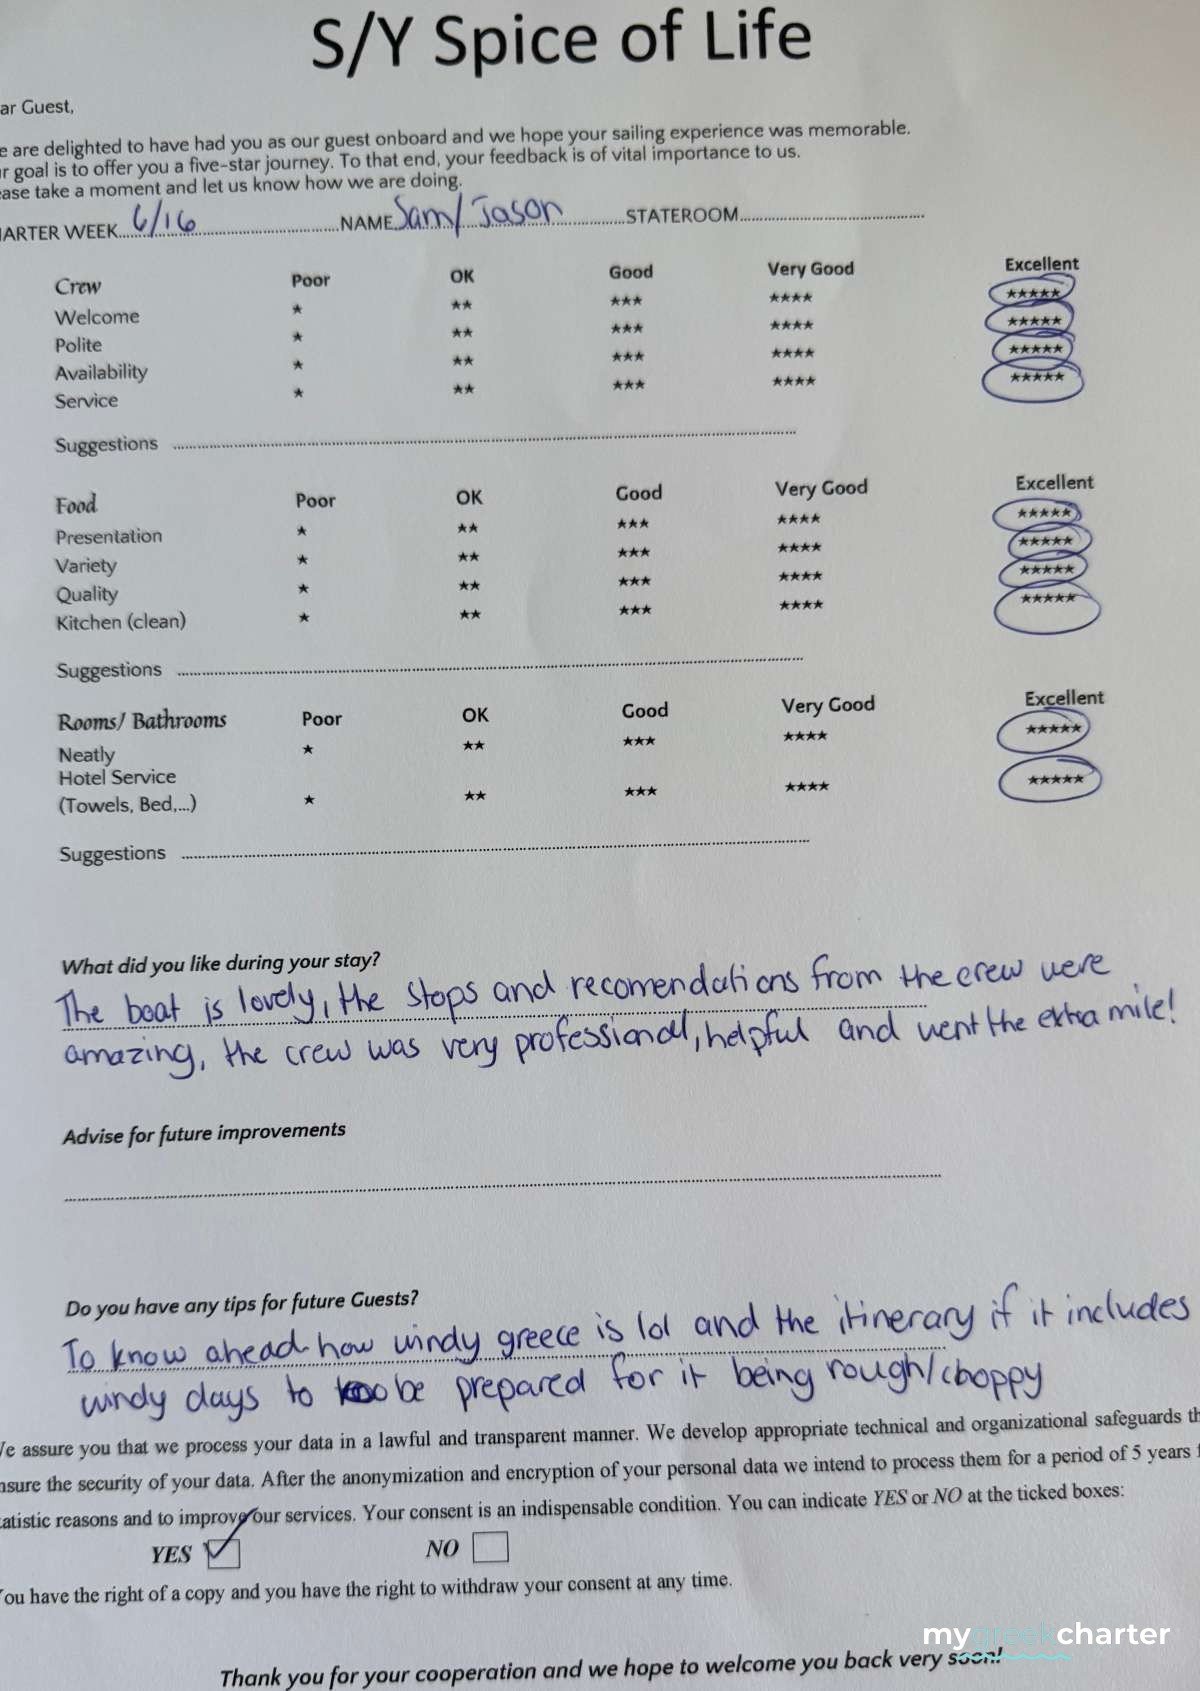 S/Y Spice of Life
ar Guest,
e are delighted to have had you as our guest onboard and we hope your sailing experience was memorable.
r goal is to offer you a five-star journey. To that end, your feedback is of vital importance to us.
ease take a moment and let us know how we are doing.
ARTER WEEK 6/16 NAME Sam/Jason STATEROOM
Crew Poor OK Good Very Good Excellent
Welcome ★ ★★ ★★★ ★★★★ ★★★★★
Polite ★ ★★ ★★★ ★★★★ ★★★★★
Availability ★ ★★ ★★★ ★★★★ ★★★★★
Service ★ ★★ ★★★ ★★★★ ★★★★★
Suggestions
Food Poor OK Good Very Good Excellent
Presentation ★ ★★ ★★★ ★★★★ ★★★★★
Variety ★ ★★ ★★★ ★★★★ ★★★★★
Quality ★ ★★ ★★★ ★★★★ ★★★★★
Kitchen (clean) ★ ★★ ★★★ ★★★★ ★★★★★
Suggestions
Rooms/ Bathrooms Poor OK Good Very Good Excellent
Neatly ★ ★★ ★★★ ★★★★ ★★★★★
Hotel Service
(Towels, Bed,...) ★ ★★ ★★★ ★★★★ ★★★★★
Suggestions
What did you like during your stay?
The boat is lovely, the stops and recomendations from the crew were
amazing, the crew was very professional, helpful and went the extra mile!
Advise for future improvements
Do you have any tips for future Guests?
To know ahead how windy greece is lol and the itinerary if it includes
windy days to be prepared for it being rough/choppy
e assure you that we process your data in a lawful and transparent manner. We develop appropriate technical and organizational safeguards th
nsure the security of your data. After the anonymization and encryption of your personal data we intend to process them for a period of 5 years f
tatistic reasons and to improve our services. Your consent is an indispensable condition. You can indicate YES or NO at the ticked boxes:
YES NO
You have the right of a copy and you have the right to withdraw your consent at any time.
mygreekcharter
Thank you for your cooperation and we hope to welcome you back very soon!